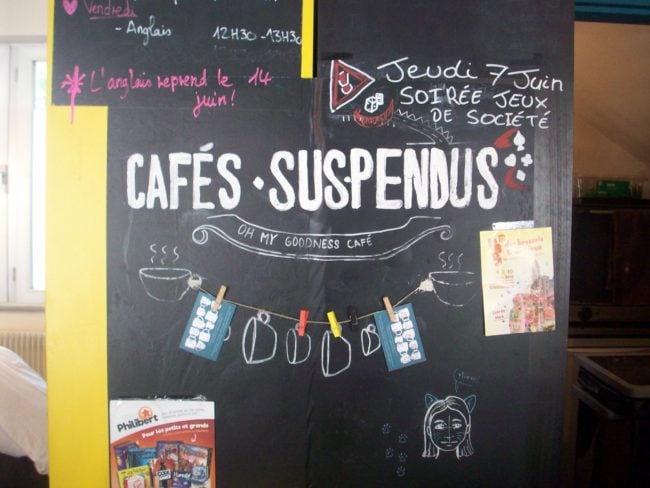 Vendredi
- Anglais 12H30 - 13H30
L'anglais reprend le 14
juin!
Jeudi 7 Juin
SOIRÉE JEUX
DE SOCIÉTÉ
CAFÉS · SUSPENDUS
OH MY GOODNESS CAFÉ
Philibert
Pour les petits et grands